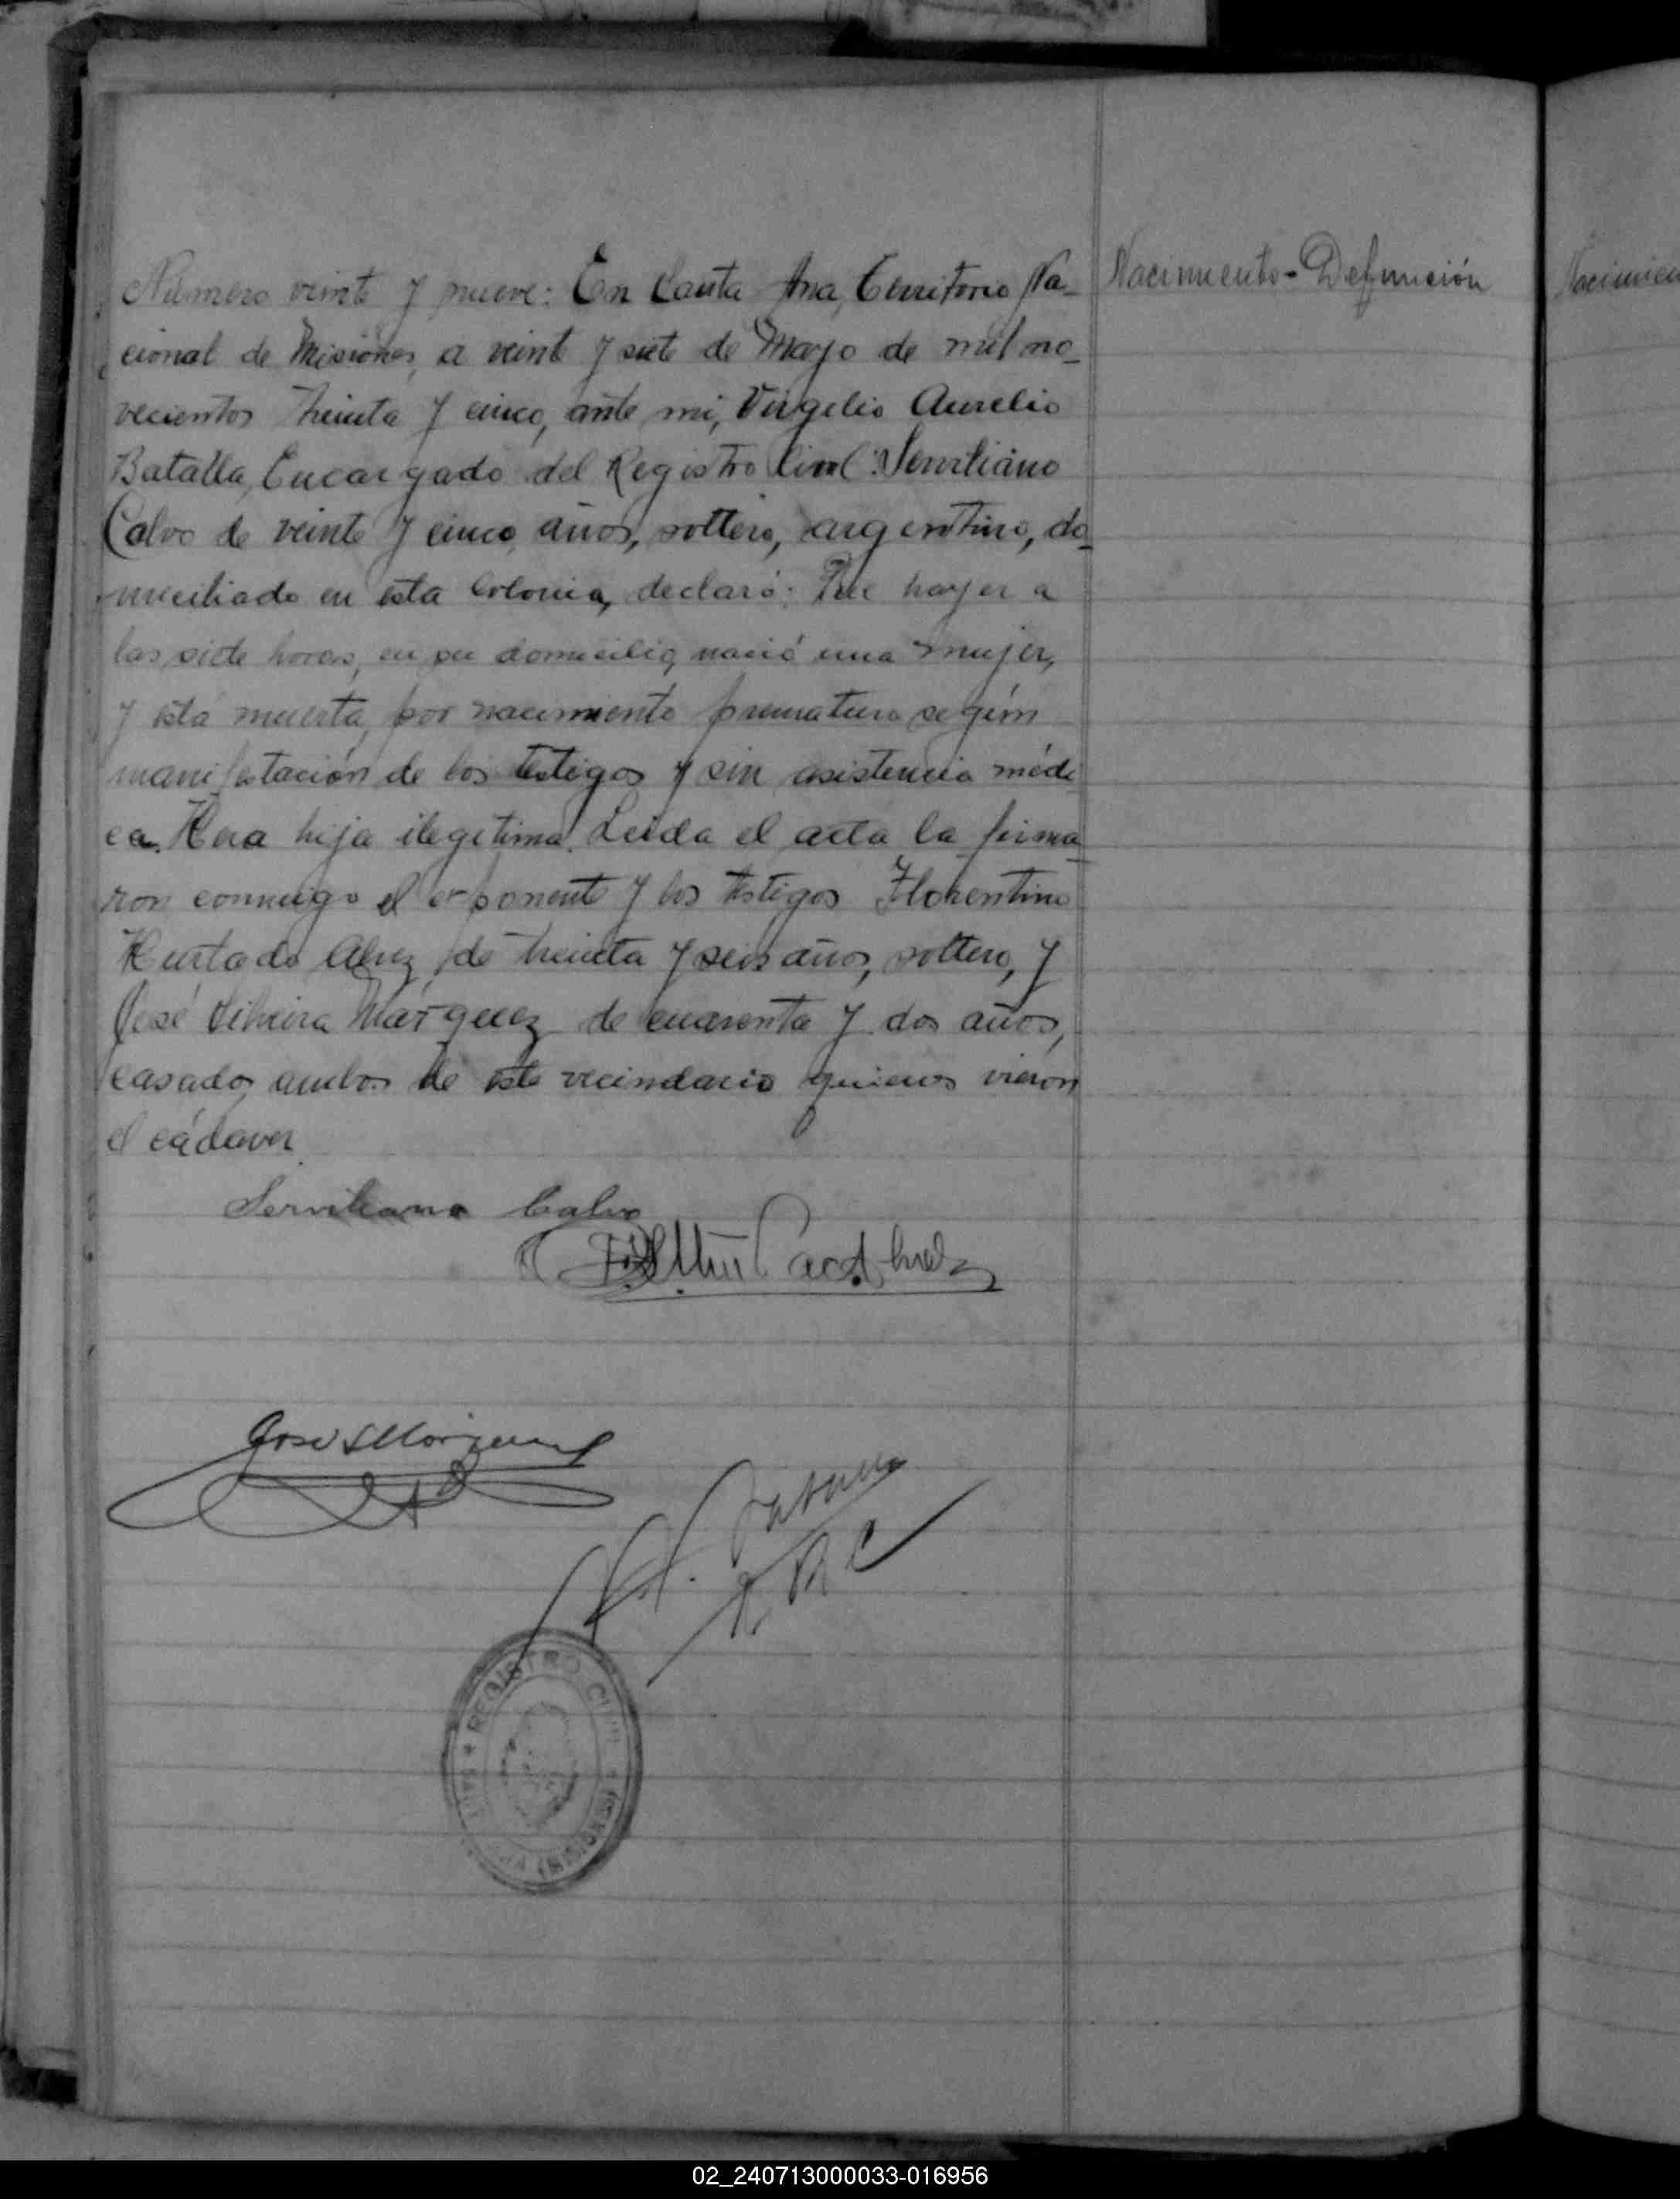 Número veinte y nueve: En Santa Ana, Territorio Na-
cional de Misiones, a veinte y siete de Mayo de mil no-
vecientos treinta y cinco, ante mi, Virgilio Aurelio
Batalla, Encargado del Registro Civil: Serviliano
Calvo de veinte y cinco años, soltero, argentino, do-
miciliado en esta Colonia, declaró: Que hayer a
las siete horas, en su domicilio, nació una mujer,
y está muerta, por nacimiento prematuro según
manifestación de los testigos y sin asistencia médi
ca. Hera hija ilegitima. Leida el acta la firma
ron conmigo el exponente y los testigos Florentino
Hurtado de treinta y seis años, soltero, y
José Silveira Márquez de cuarenta y dos años,
casado, ambos de este vecindario quienes vieron
el cádaver.
Nacimiento - Defunción
Serviliano Calvo
REGISTRO CIVIL
(MISIONES)
02_240713000033-016956